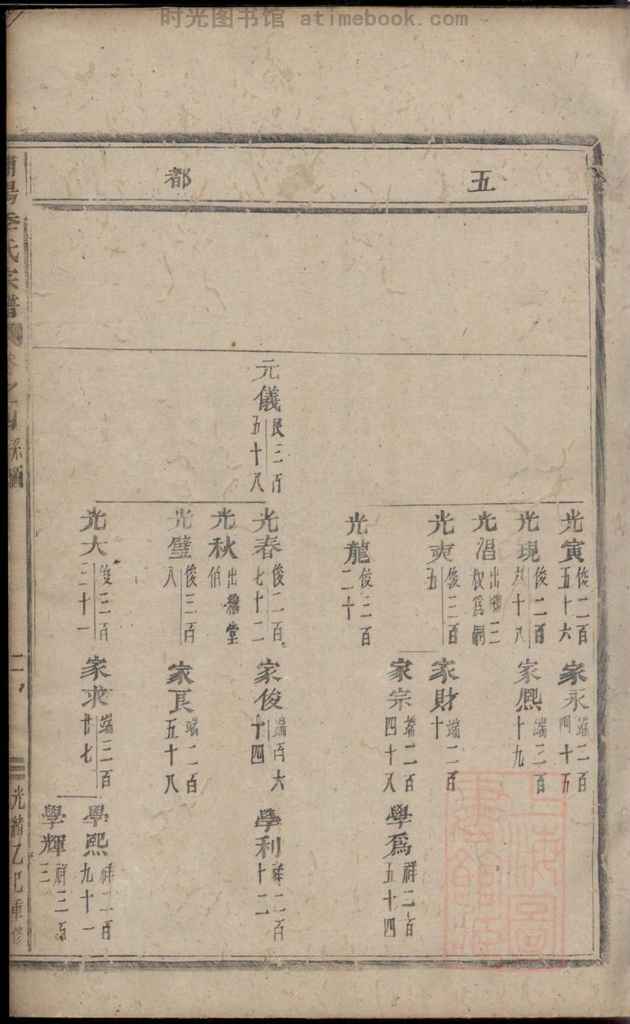 时光图书馆 atimebook.com
五都
元儀 民三百五十八
光寅 俊二百五十六
光現 俊二百九十八
光淐 出繼三叔爲嗣
光奭 俊三百五
光龍 俊三百二十
光春 俊二百七十二
光秋 出繼堂伯
光璧 俊三百八
光大 俊三百三十一
家永 端二百四十五
家興 端三百十九
家財 端二百十
家宗 端二百四十八
家俊 端百六十四
家良 端二百五十八
家求 端三百廿七
學爲 祥二百五十四
學利 祥二百十二
學熙 祥二百九十一
學輝 祥三百三
李氏宗譜
光緒乙巳重修